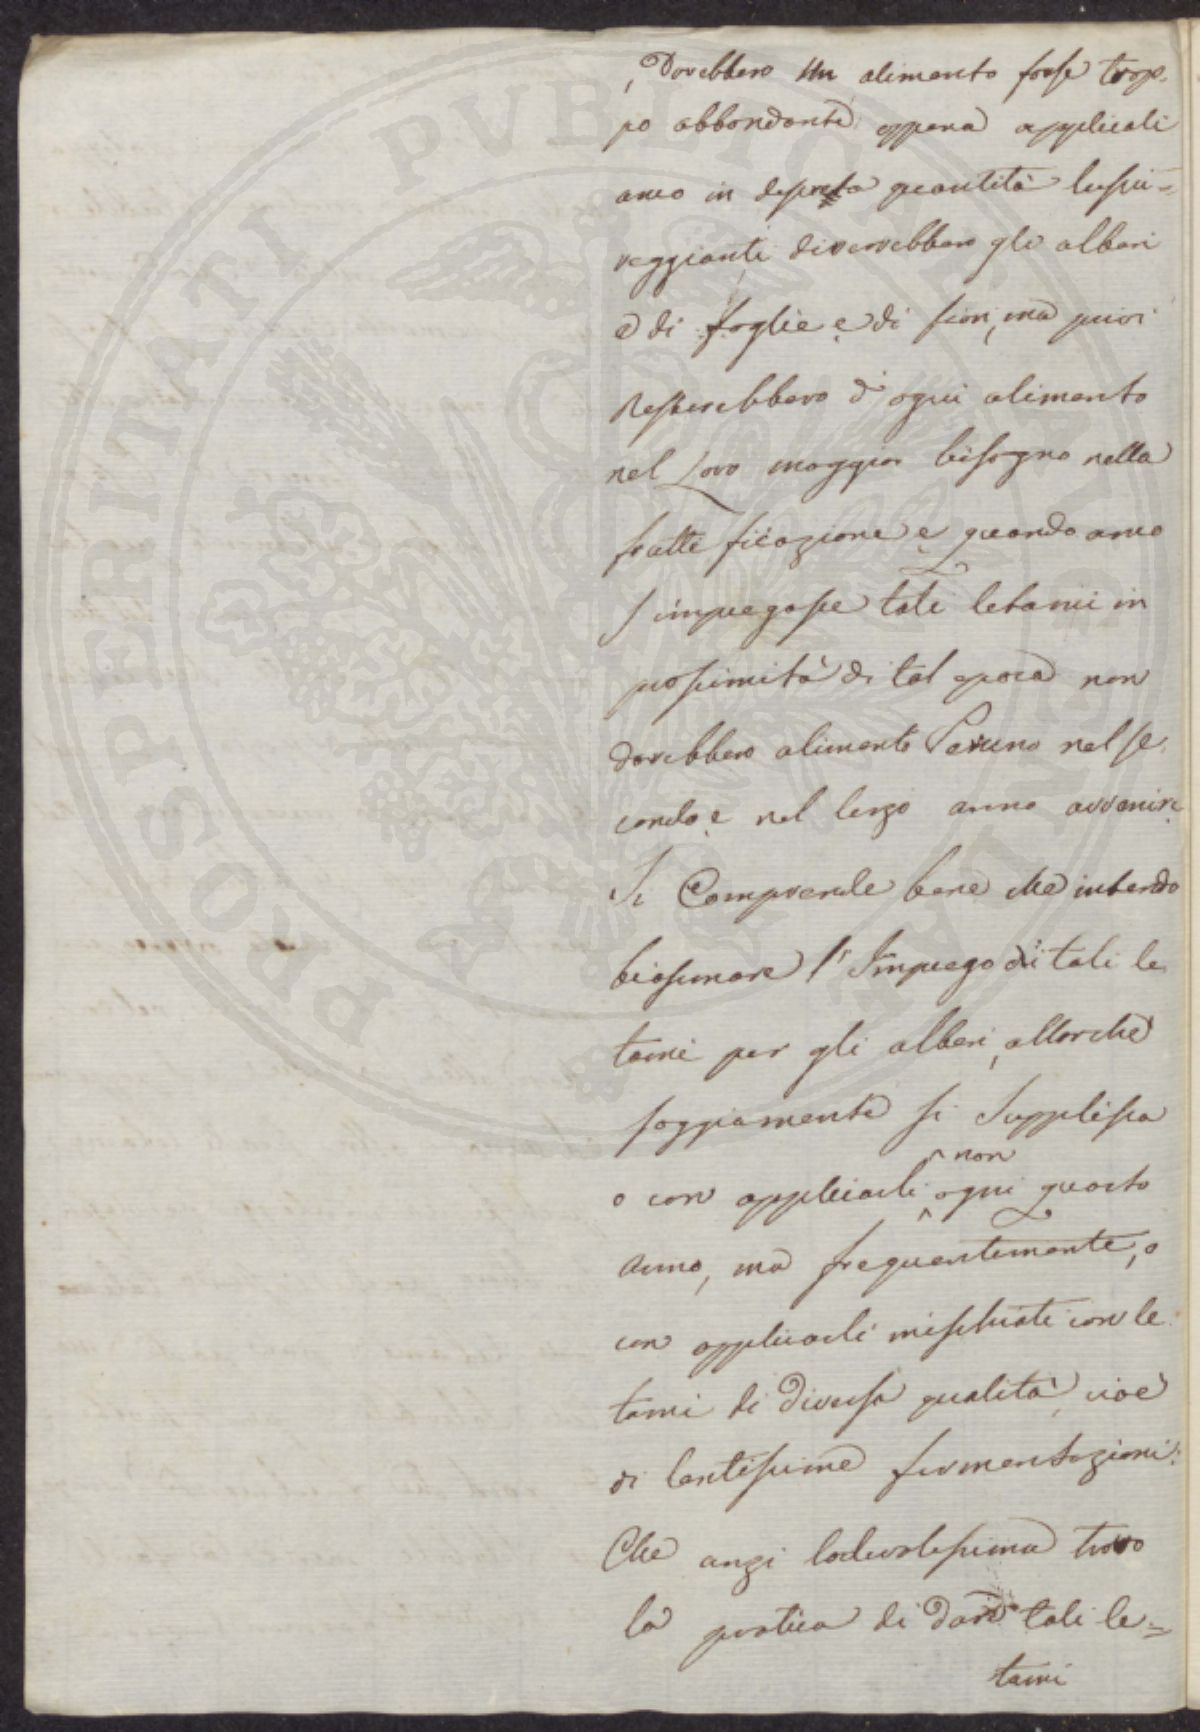 Dovebbero un alimento forse trop-
po abbondante, eppena applicali
anco in discreta quantità lussu=
reggianti diverrebbero gli alberi
e di foglie e di fiori, ma privi
resterebbero d'ogni alimento
nel loro maggior bisogno nella
frutti ficazione e quando anco
s'impiegasse tali letami in
prossimità di tal epoca non
darebbero alimento veruno nel se
condo e nel terzo anno avvenire
Si Comprende bene che intendo
biasimare l'Impiego di tali le
tami per gli alberi, allorché
saggiamente si supplisca
non
o con applicarli ogni quarto
anno, ma frequentemente, o
con applicarli mischiati con le
tami di diversa qualità, cioè
di lentissime fermentazioni:
Che anzi lodevolissima trovo
la pratica di dare tali le=
tami
PROSPERITATI PVBLICAE AVGENDAE